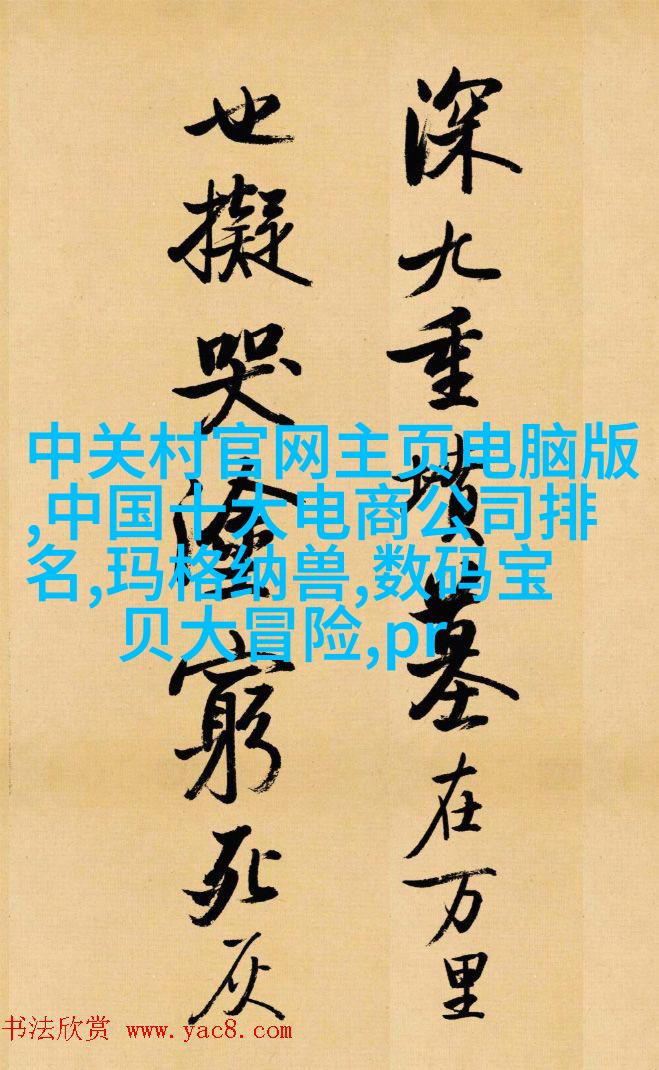 深九重墳墓在万里
也擬哭塗窮死灰
中关村官网主页电脑版
,中国十大电商公司排
名,玛格纳兽,数码宝
贝大冒险,pr
书法欣赏 www.yac8.com